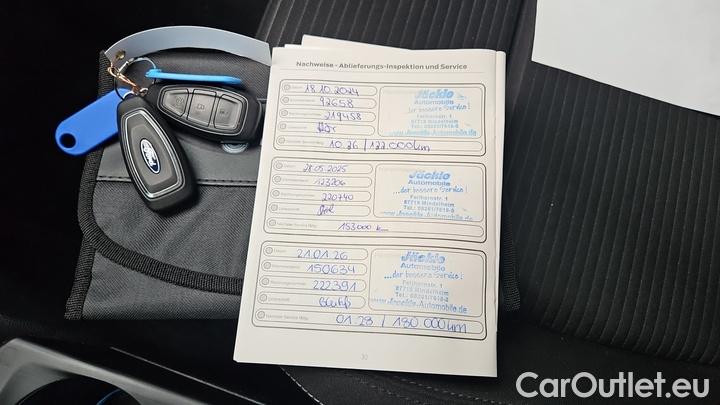 Nachweise - Ablieferungs-Inspektion und Service
Datum: 18.10.2024
92658
219458
10.26 / 122 000 km
Jäckle
Automobile
...der bessere Service!
Fellhornstr. 1
87719 Mindelheim
www.Jaeckle-Automobile.de
Datum: 28.05.2025
123206
220740
153000 km
Jäckle
Automobile
...der bessere Service!
Fellhornstr. 1
87719 Mindelheim
Tel.: 08261/7618-0
www.Jaeckle-Automobile.de
Datum: 21.01.26
150634
222391
Nächster Service fällig: 01.28 / 180 000 km
Jäckle
Automobile
...der bessere Service!
Fellhornstr. 1
87719 Mindelheim
Tel.: 08261/7618-0
www.Jaeckle-Automobile.de
Ford
CarOutlet.eu